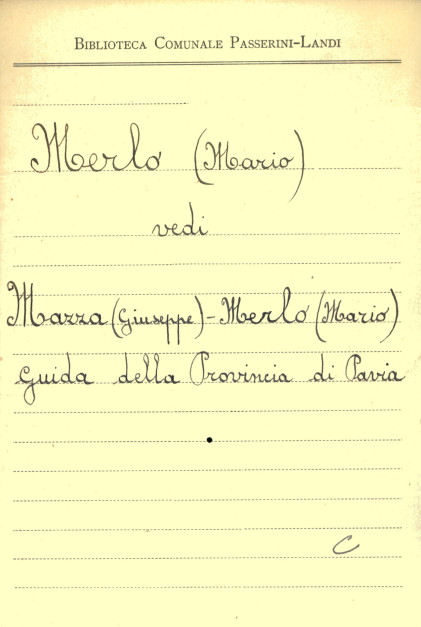 BIBLIOTECA COMUNALE PASSERINI-LANDI
Merlo (Mario)
vedi
Mazza (Giuseppe) - Merlo (Mario)
Guida della Provincia di Pavia
C